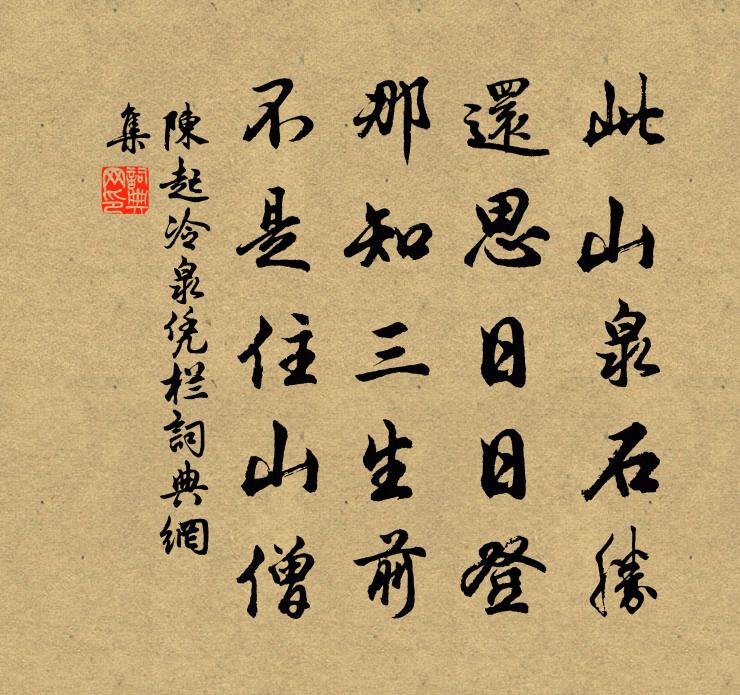 此山泉石勝
還思日日登
那知三生前
不是住山僧
陳起冷泉凭栏詞典網
集
詞典
网印